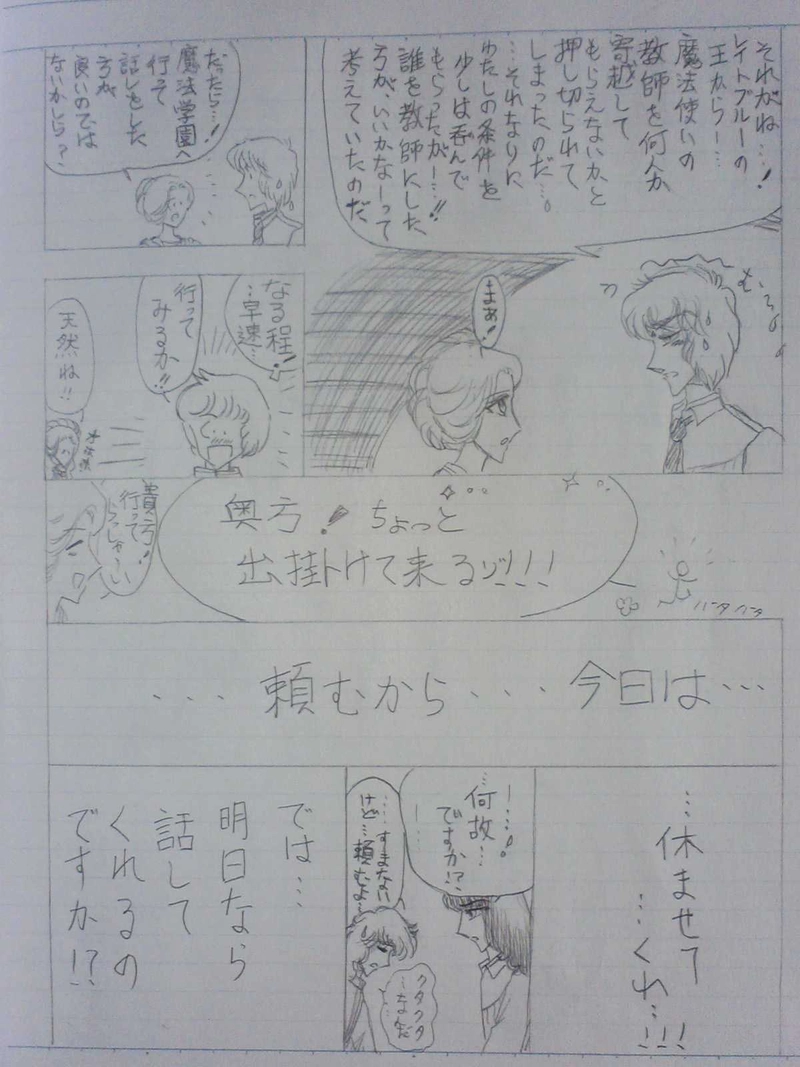 それがね…!
レイトブルーの
王からー…
魔法使いの
教師を何人か
寄越して
もらえないかと
押し切られて、
しまったのだ…。
…それなりに
わたしの条件を
少しは呑んで
もらったがー…!!
誰を教師にした
方が、いいかなーって
考えていたのだ。
むぅ
まぁ!
だったら…!
魔法学園へ
行って
話しをした
方が
良いのでは
ないかしら?
なる程!
…早速…
行って
みるか!!
天然ね!!
奥方!ちょっと
出掛けて来るゾ!!!
パタパタ
貴方!
行って
らっしゃーい
...頼むから...今日は...
…休ませて
…くれ…!!!
…何故…
ですか!?
……すまない
けど…頼むよ…
クタクタ
ーなんだ
では…
明日なら
話して
くれるの
ですか!?